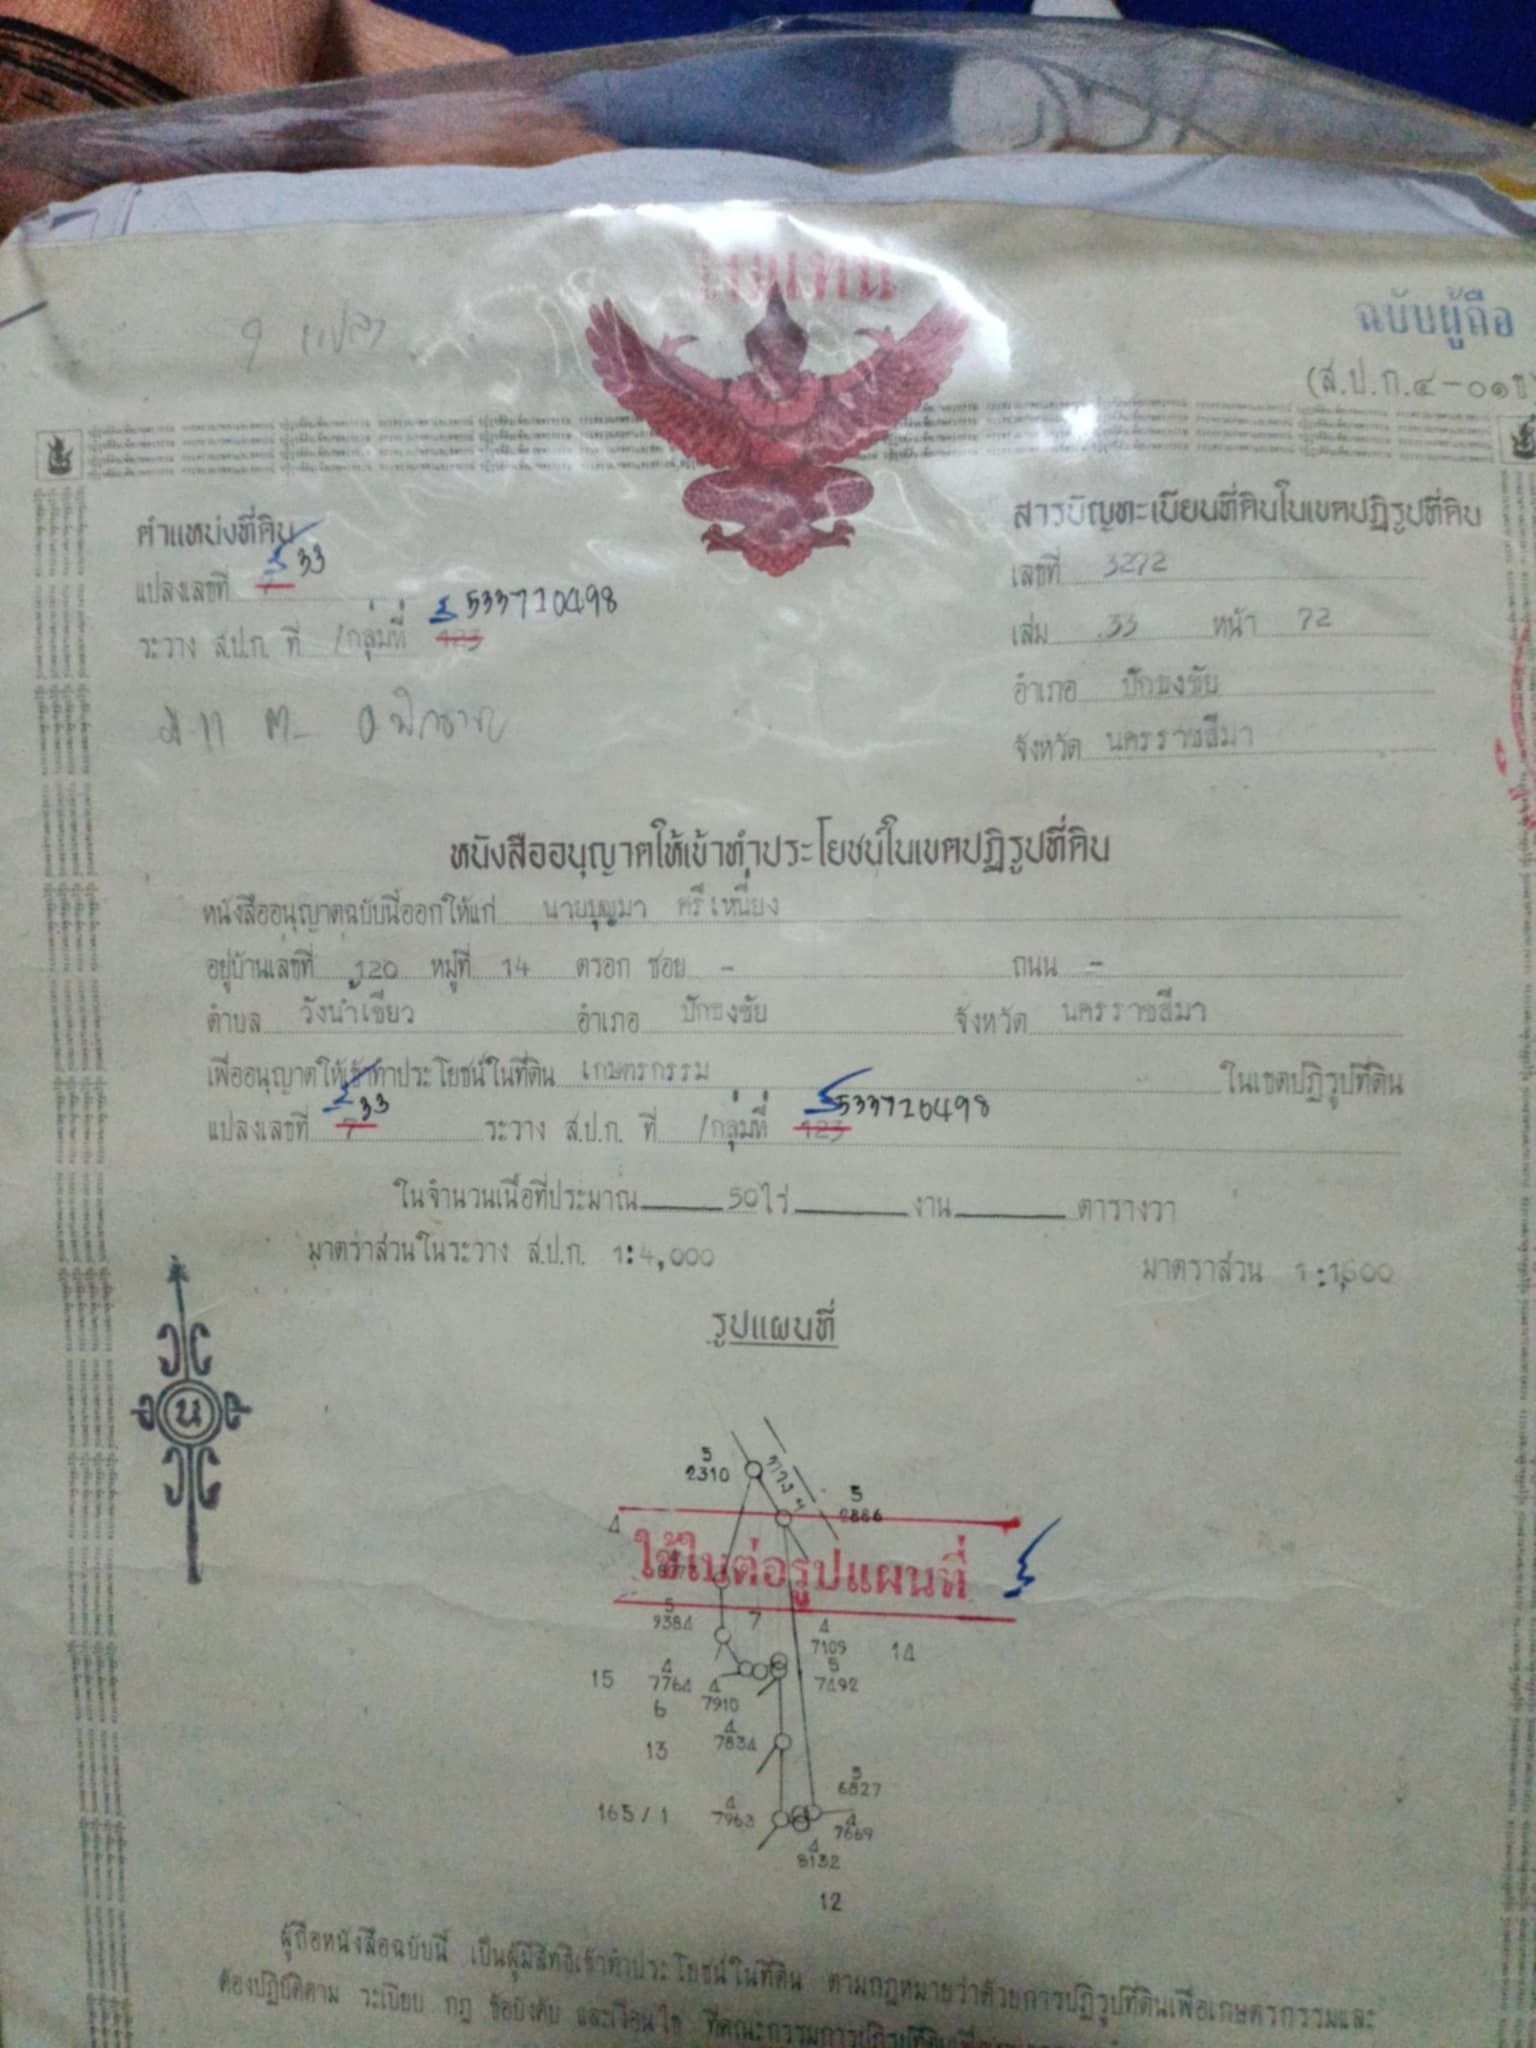 ใบแทน
ฉบับผู้ถือ
9 แปลง
(ส.ป.ก.๔-๐๑ข)
ตำแหน่งที่ดิน
แปลงเลขที่ 7 33
ระวาง ส.ป.ก. ที่ /กลุ่มที่ 123 533720498
สารบัญทะเบียนที่ดินในเขตปฏิรูปที่ดิน
เลขที่ 3272
เล่ม 33 หน้า 72
อำเภอ ปักธงชัย
จังหวัด นครราชสีมา
หนังสืออนุญาตให้เข้าทำประโยชน์ในเขตปฏิรูปที่ดิน
หนังสืออนุญาตฉบับนี้ออกให้แก่ นายบุญมา ศรีเหนี่ยง
อยู่บ้านเลขที่ 120 หมู่ที่ 14 ตรอก ซอย - ถนน -
ตำบล วังน้ำเขียว อำเภอ ปักธงชัย จังหวัด นครราชสีมา
เพื่ออนุญาตให้เข้าทำประโยชน์ในที่ดิน เกษตรกรรม ในเขตปฏิรูปที่ดิน
แปลงเลขที่ 7 33 ระวาง ส.ป.ก. ที่ /กลุ่มที่ 123 533720498
ในจำนวนเนื้อที่ประมาณ 50 ไร่ งาน ตารางวา
มาตราส่วนในระวาง ส.ป.ก. 1:4,000 มาตราส่วน 1:1,600
รูปแผนที่
น
5
2310
ทาง ฯ
5
2886
4
ใช้ใบต่อรูปแผนที่
5
9384
7
4
7109
14
15
4
7764
4
7910
5
7492
6
13
4
7834
5
6827
165/1
4
7963
4
7669
4
8132
12
ผู้ถือหนังสือฉบับนี้ เป็นผู้มีสิทธิเข้าทำประโยชน์ในที่ดิน ตามกฎหมายว่าด้วยการปฏิรูปที่ดินเพื่อเกษตรกรรมและ
ต้องปฏิบัติตาม ระเบียบ กฎ ข้อบังคับ และเงื่อนไข ที่คณะกรรมการปฏิรูปที่ดิน